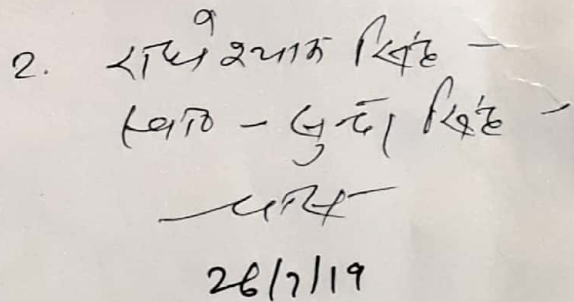 2. राधे श्याम सिंह -
स्व० - सिंह -
26/7/19